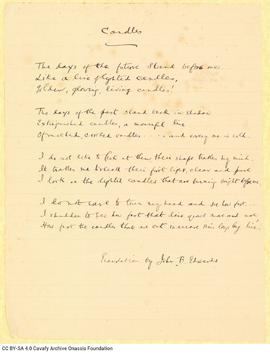 Candles
The days of the future stand before me
Like a line of lighted candles,
Golden, glowing, living candles!
The days of the past stand back in
Extinguished candles, a mournful line
Of candles . . . . and every one is cold.
I do not like to look at them their shape my mind.
It me to recall their first light, clear and pure
I look on the lighted candles that are burning bright before me.
I do not care to turn my head and see how far . . .
I shudder to see how fast that line and
How fast the candles that are out increase one by one.
Translation by John B.
CC BY-SA 4.0 Cavafy Archive Onassis Foundation